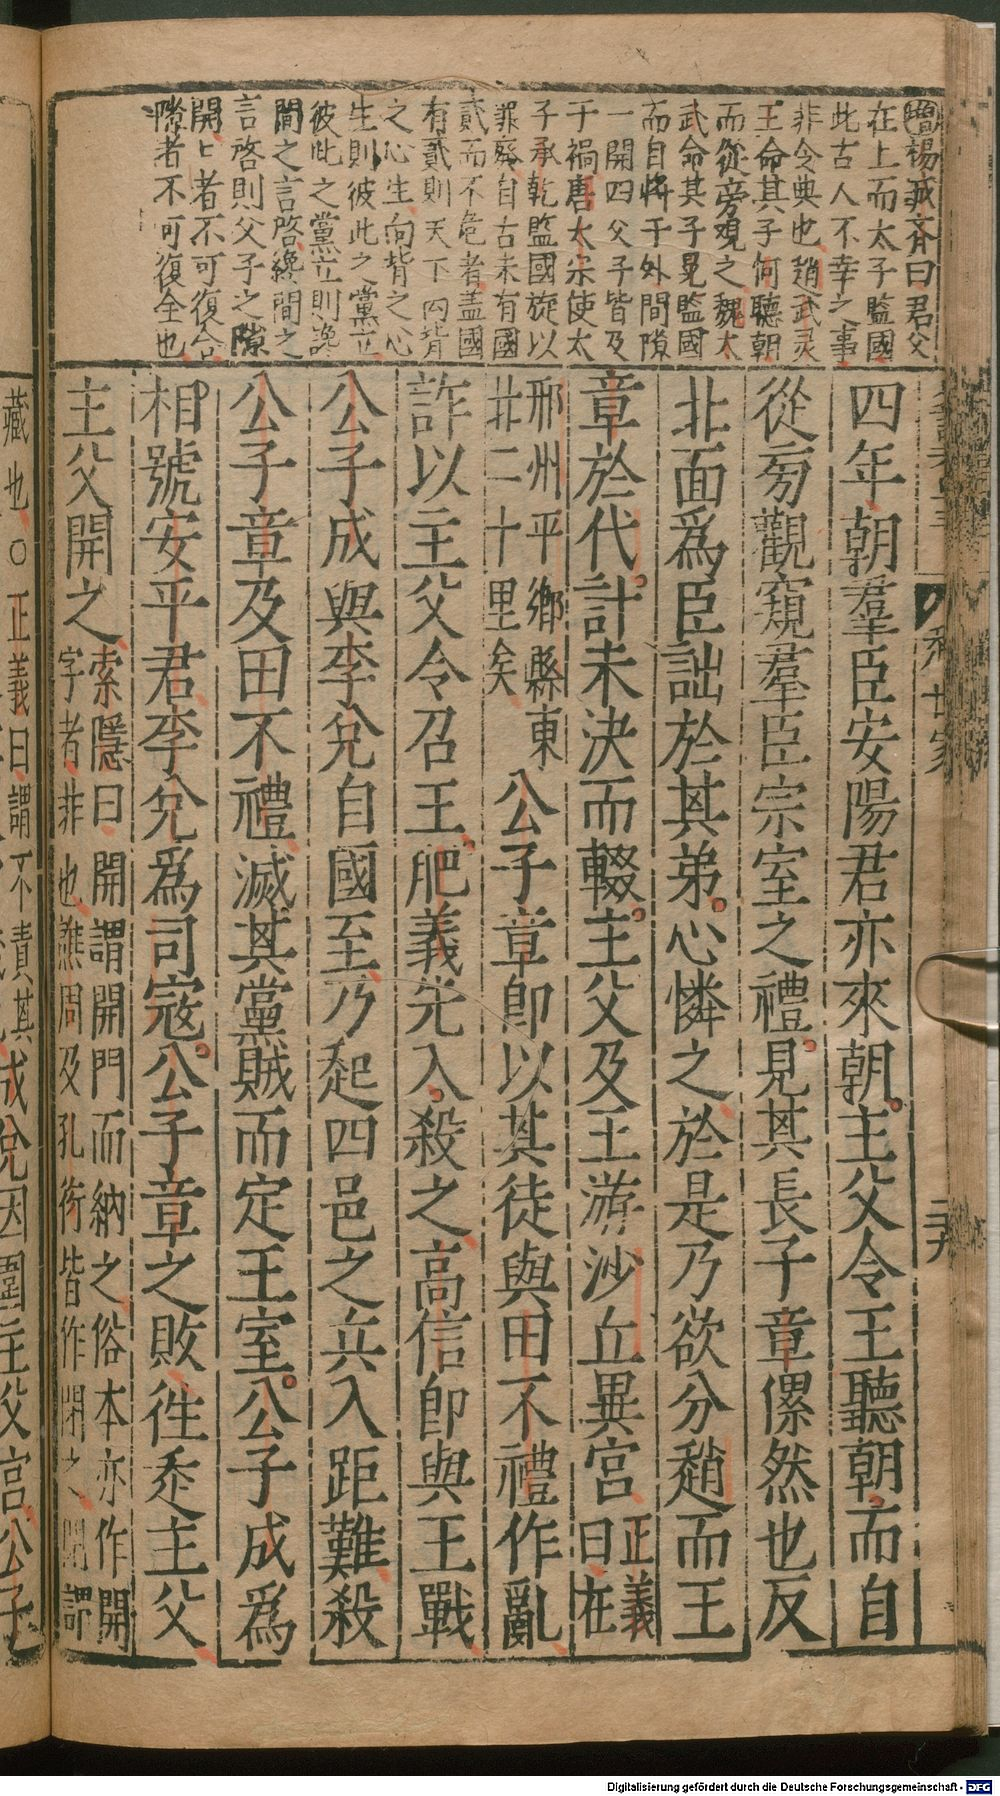 增楊誠齋曰君父
在上而太子監國
此古人不幸之事
非令典也趙武灵
王命其子何聽朝
而從旁覌之魏太
武命其子晃監國
而自將于外間隙
一開四父子皆及
于禍唐太宗使太
子承乾監國旋以
罪廢自古未有國
貳而不危者盖國
有貳則天下向背
之心生向背之心
生則彼此之黨立
彼此之黨立則讒
間之言啓讒間之
言啓則父子之隙
開開者不可復合
隙者不可復全也
四年朝羣臣安陽君亦來朝主父令王聽朝而自
從旁觀窺羣臣宗室之禮見其長子章傫然也反
北面爲臣詘於其弟心憐之於是乃欲分趙而王
章於代計未決而輟主父及王游沙丘異宮正義曰在
邢州平鄉縣東北二十里矣公子章即以其徒與田不禮作亂
詐以主父令召王肥義先入殺之高信即與王戰
公子成與李兌自國至乃起四邑之兵入距難殺
公子章及田不禮滅其黨賊而定王室公子成爲
相號安平君李兌爲司寇公子章之敗徃走主父
主父開之索隱曰開謂開門而納之俗本亦作開字者非也譙周及孔衍皆作閉之閉謂
藏也○正義曰謂不責其
成兌因圍主父宮公子